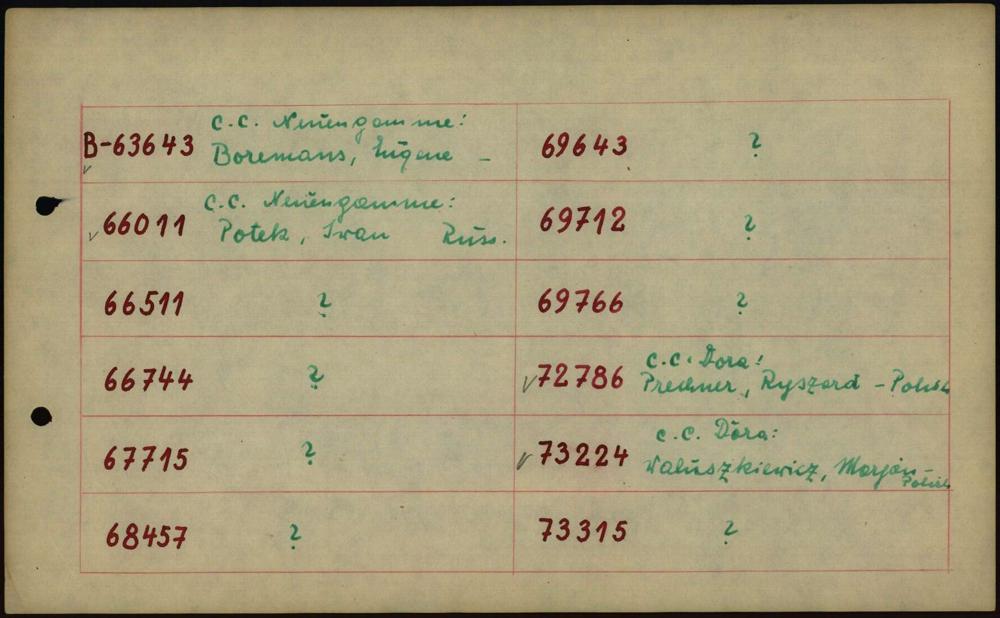 B-63643
C.C. Neuengamme:
Boremans, Eugene -
66011
C.C. Neuengamme:
Potek, Iwan Russ.
66511 ?
66744 ?
67715 ?
68457 ?
69643 ?
69712 ?
69766 ?
72786
C.C. Dora:
Ryszard - Polish
73224
C.C. Dora:
Waluszkiewicz, Marjan - Polish
73315 ?